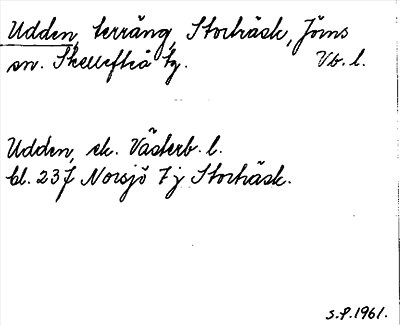 Udden, terräng, Storträsk, Jörns
sn. Skellefteå tg. Vb. l.
Udden, ek. Västerb. l.
bl. 23J Norsjö 7j Storträsk.
S.P. 1961.